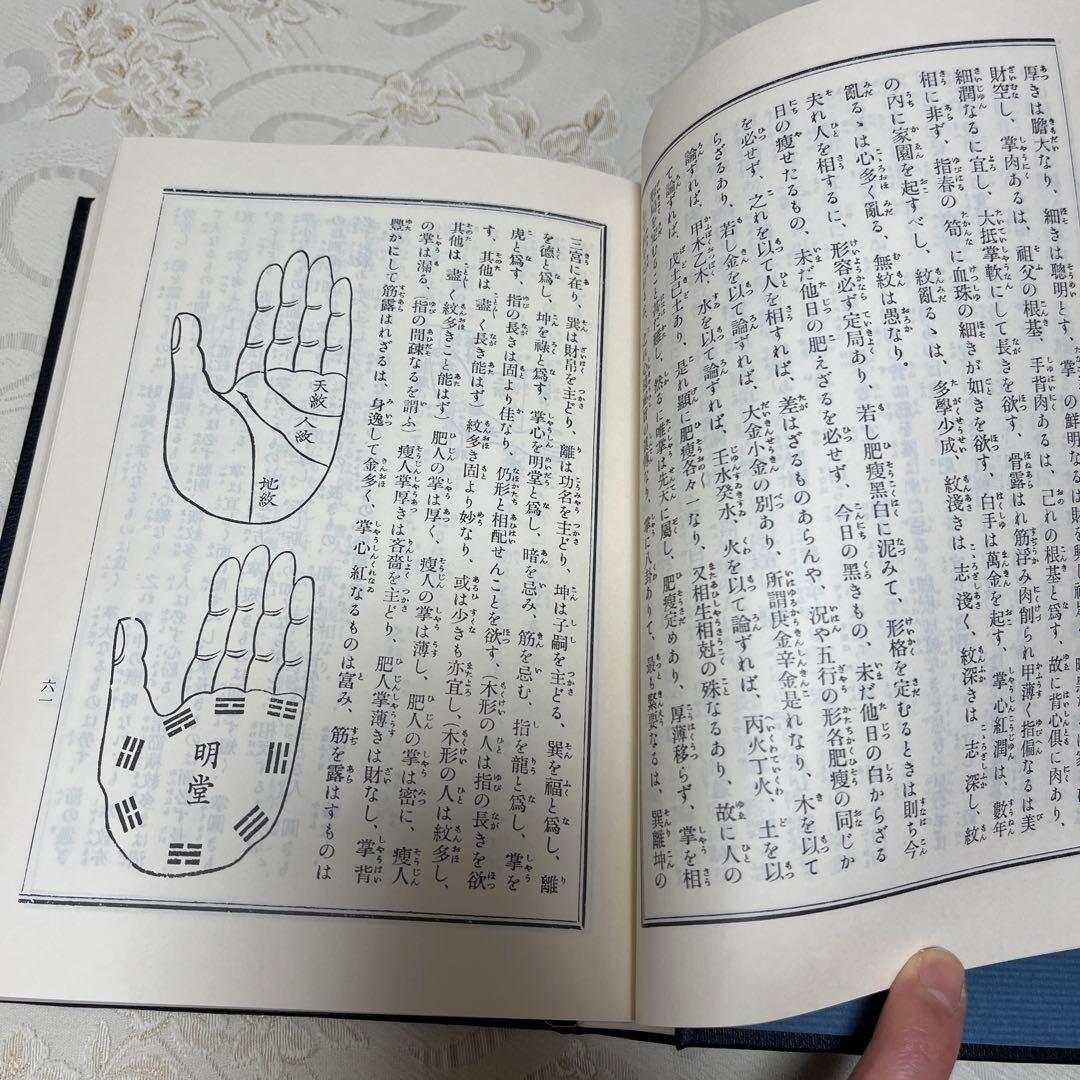 厚きは膽大なり、細きは聰明とす、掌の鮮なる
財空し、掌肉あるは、祖父の根基、手背肉あるは、己れの根基と爲す、故に背心倶に肉あり、
細潤なるに宜し、大抵掌軟にして長きを欲す、骨露はれ筋浮み肉削られ甲薄く指偏なるは美
相に非ず、指春の筍に血珠の細きが如きを欲す、白手は萬金を起す、掌心紅潤は、數年
の内に家園を起すべし、紋亂るゝは、多學少成、紋淺きは、志淺く、紋深きは、志深し、紋
亂るゝは心多く亂る、無紋は愚なり。
夫れ人を相するに、形容必ず定局あり、若し肥瘦黑白に泥みて、形格を定むるときは則ち今
日の瘦せたるもの、未だ他日の肥えざるを必せず、今日の黑きもの、未だ他日の白からざる
を必せず、之れを以て人を相すれば、差はざるものあらんや、況や五行の形各肥瘦の同じか
らざるあり、若し金を以て論ずれば、大金小金の別あり、所謂庚金辛金是れなり、木を以て
論ずれば、甲木乙木、水を以て論ずれば、壬水癸水、火を以て論ずれば、丙火丁火、土を以
て論ずれば、戊土己土あり、是れ顯に肥瘦各々一なり、又相生相尅の殊なるあり、故に人の
然るに唯掌は先天に屬し、肥瘦定めあり、厚薄移らず、掌を相
掌に八卦ありて、最も緊要なるは、巽離坤の
三宮に在り、巽は財帛を主どり、離は功名を主どり、坤は子嗣を主どる、巽を福と爲し、離
を德と爲し、坤を祿と爲す、掌心を明堂と爲し、暗を忌み、筋を忌む、指を龍と爲し、掌を
虎と爲す、指の長きは固より佳なり、仍形と相配せんことを欲す、(木形の人は指の長きを欲
す、其他は盡く長き能はず)紋多き固より妙なり、或は少きも亦宜し、(木形の人は紋多し、
其他は盡く紋多きこと能はず)肥人の掌は厚く、瘦人の掌は薄し、肥人の掌は密に、瘦人
の掌は漏る、(指の間疎なるを謂ふ)瘦人掌厚きは吝嗇を主どり、肥人掌薄きは財なし、掌背
豐かにして筋露はれざるは、身逸して金多く、掌心紅なるものは富み、筋を露はすものは
天紋
人紋
地紋
明堂
六一